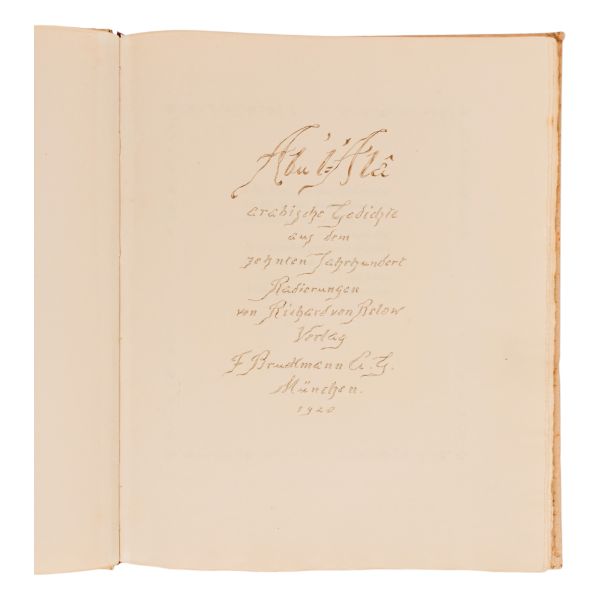 Abu'l-'Alâ
arabische Gedichte
aus dem
zehnten Jahrhundert
Radierungen
von Richard von Below
Verlag
F. Bruckmann A. G.
München.
1920